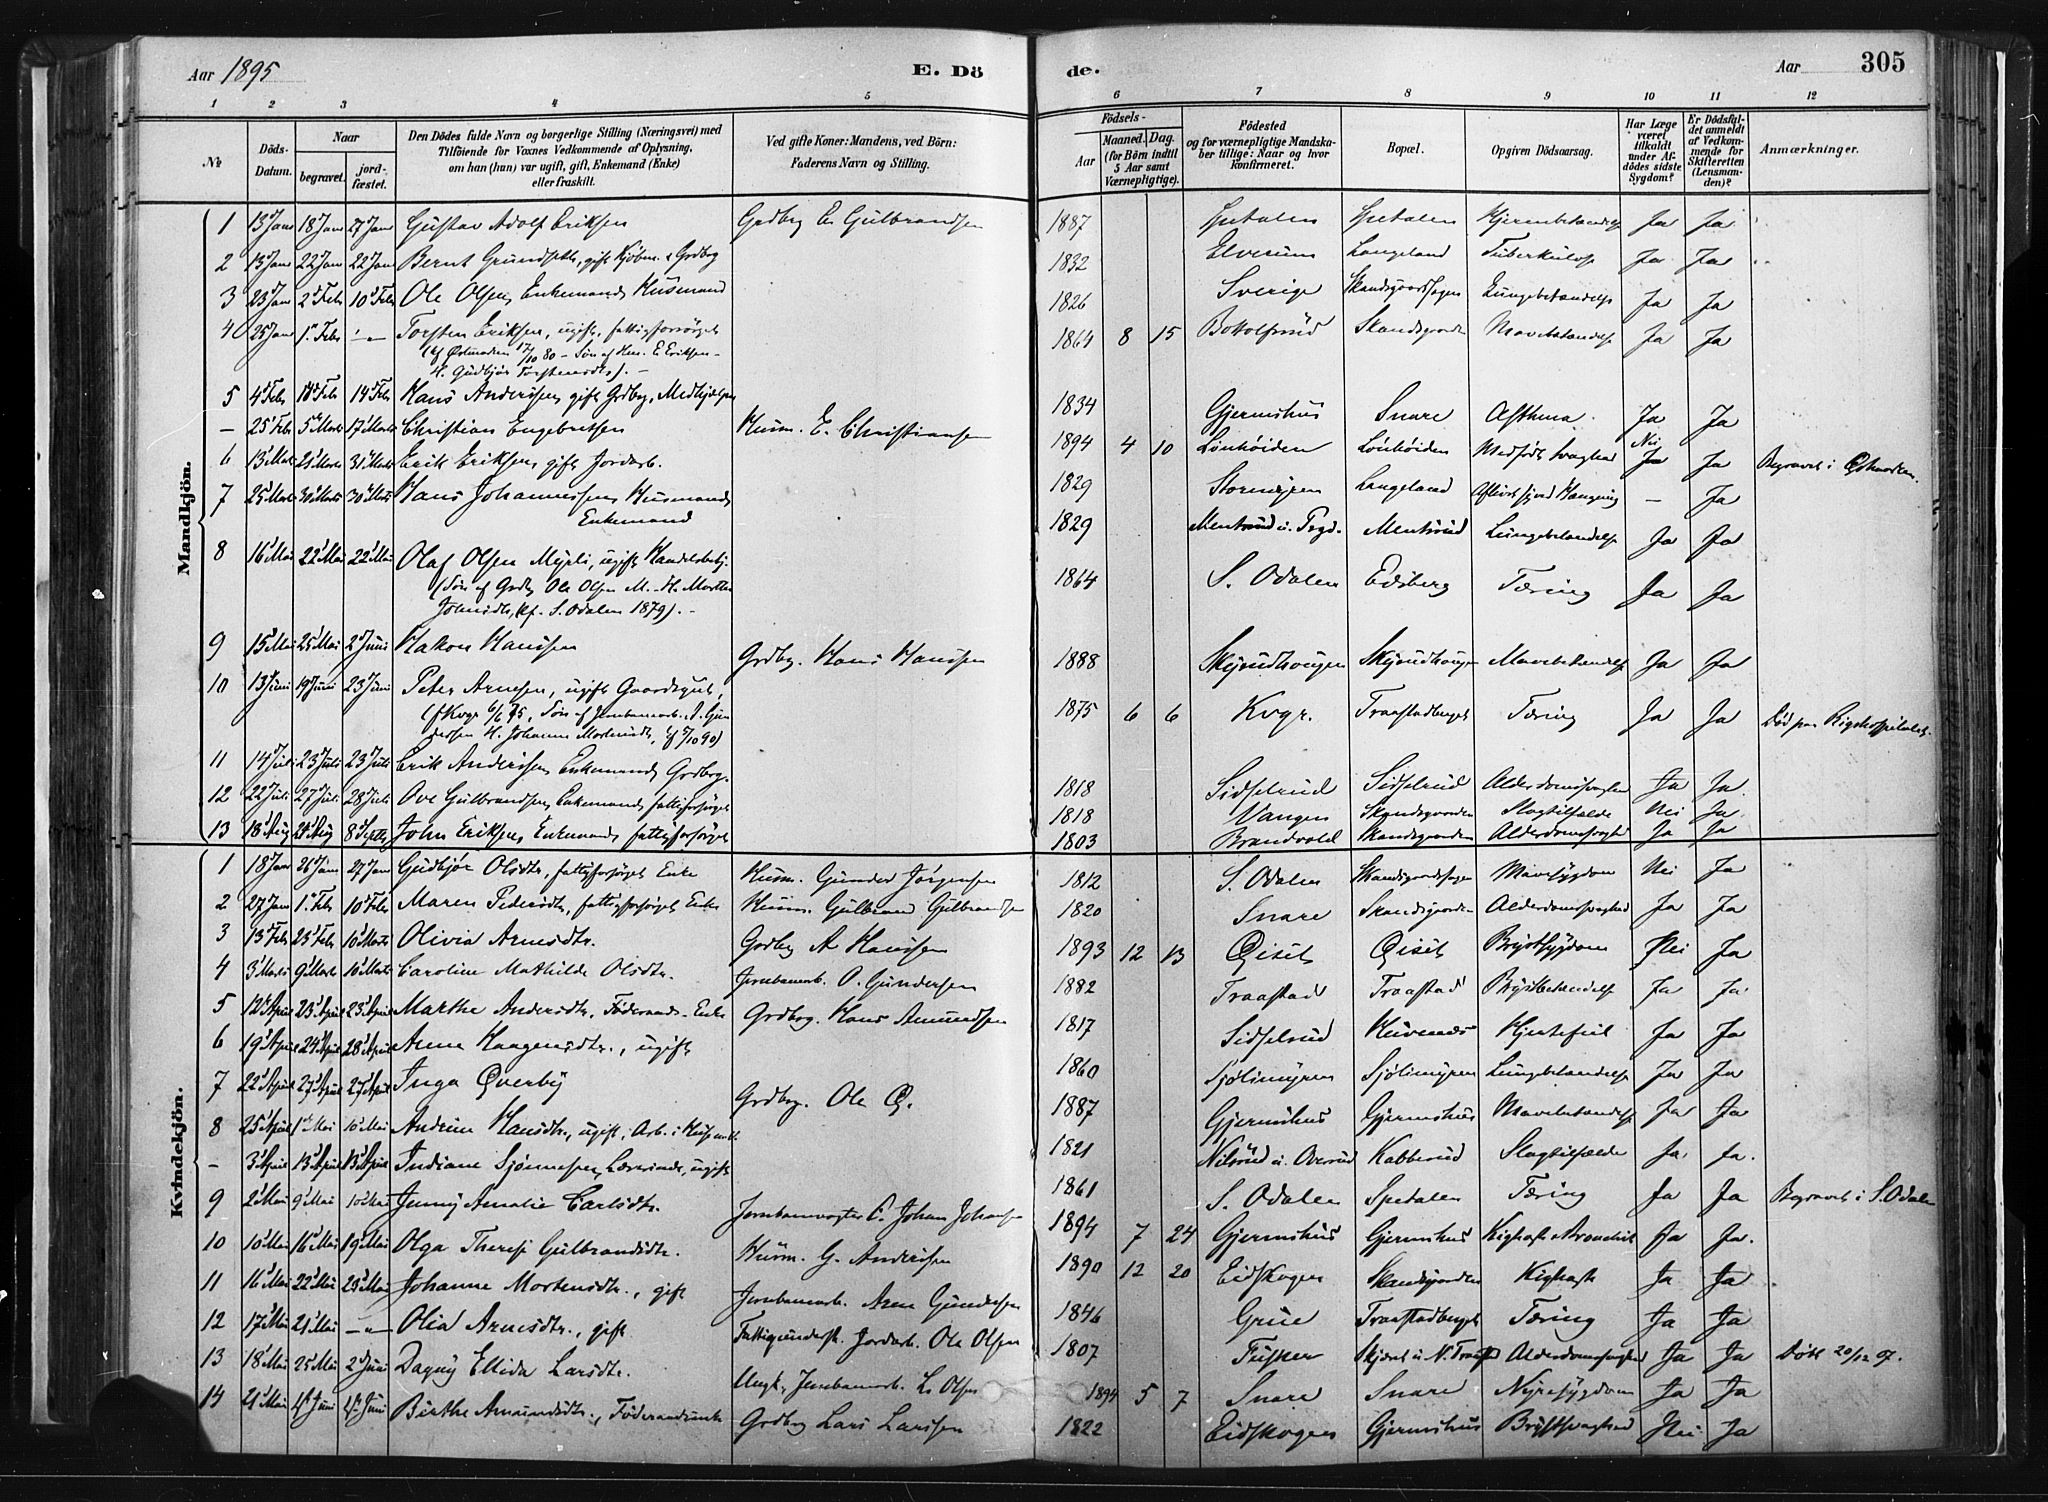 Aar 1895
E. Dö
de.
Aar
305
1 2 3 4 5 6 7 8 9 10 11 12
№
Döds-Datum.
Naar
begravet.
jord-fæstet.
Den Dödes fulde Navn og borgerlige Stilling (Næringsvei) med
Tilföiende for Voxnes Vedkommende af Oplysning,
om han (hun) var ugift, gift, Enkemand (Enke)
eller fraskilt.
Ved gifte Koner: Mandens, ved Börn:
Faderens Navn og Stilling.
Födsels-
Aar
Maaned. Dag.
(for Börn indtil
5 Aar samt
Værnepligtige).
Födested
og for værnepligtige Mandska-
ber tillige: Naar og hvor
konfirmeret.
Bopæl.
Opgiven Dödsaarsag.
Har Læge
været
tilkaldt
under Af-
dödes sidste
Sygdom?
Er Dödsfal-
det anmeldt
af Vedkom-
mende for
Skifteretten
(Lensman-
den)?
Anmærkninger.
Mandkjön.
1 13 Jan 18 Jan 27 Jan Gustav Adolf Eriksen Grdbrg E. Gulbrandsen 1887 Spetalen Spetalen Hjernebetændelse Ja Ja
2 13 Jan 22 Jan 22 Jan Bernt Grundseth, gift Kjöbm. & Grdbrg 1832 Elverum Langeland Tuberkulose Ja Ja
3 23 Jan 2 Feb 10 Feb Ole Olsen, Enkemand, Husmand 1826 Sverige Skandsgaardsagen Lungebetændelse Ja Ja
4 25 Jan 1 Feb –"– Torsten Eriksen, ugift, fattigforsörget 1864 8 15 Bottolfsrud Skandsgaarden Mavebetændelse Ja Ja
(kf Østmarken 17/10 80 – Sön af Hm. E. Eriksen –
H. Gudbjör Torstensdtr.). –
5 4 Feb 14 Feb Hans Anderssen, gift Grdbrg, Medhjælper 1834 Gjermshus Snare Asthma Ja Ja
– 25 Feb 5 Marts 17 Marts Christian Engebretsen Husm. E. Christiansen 1894 4 10 Lönhöiden Lönhöiden Medfödt Svaghed Nei
6 13 Marts 21 Marts 31 Marts Erik Eriksen, gift Jordarb. 1829 Stormyren Langeland Ja Ja Begravet i Østmarken.
7 25 Marts 30 Marts 30 Marts Hans Johannessen, Husmand, 1829 Mentsrud Lungebetændelse – Ja
Enkemand
8 16 Mai 22 Mai 22 Mai Olaf Olsen Myrli, ugift Handelsbetj. 1864 S. Odalen Edsberg Tæring Ja Ja
(Sön af Grdbr. Ole Olsen M. – H. Marthe
Johnsdtr., kf. S. Odalen 1879). –
9 15 Mai 25 Mai 2 Juni Hakon Hansen Grdbrg. Hans Hansen 1888 Skjrudhougen Skjrudhougen Mavebetændelse Ja Ja
10 13 Juni 19 Juni 23 Juni Peter Arnesen, ugift Gaardsgut, 1875 6 6 Kvgr. Traastadberget Tæring Ja Ja Död paa Rigshospitalet.
(f Kvgr 6/6 75, Sön af Jernbanearb. A. Gun
dersen H. Johanne Mortensdtr, kf 5/10 90)
11 14 Juli 23 Juli 23 Juli Erik Anderssen, Enkemand, Grdbrg. 1818 Sidselrud Sidselrud Alderdomssvaghed Ja Ja
12 22 Juli 27 Juli 28 Juli Ove Gulbrandsen, Enkemand, fattigforsörget 1818 Vangen Skandsgaarden Slagtilfælde Nei Ja
13 18 Aug 24 Aug 8 Septbr John Eriksen, Enkemand, fattigforsörget 1803 Brandvold Skandsgaarden Alderdomssvaghed Ja Ja
Kvindekjön.
1 18 Jan 26 Jan 27 Jan Gudbjör Olsdtr, fattigforsörget Enke Husm. Gunder Jörgensen 1812 S. Odalen Skandsgaardsagen Mavesygdom Nei Ja
2 27 Jan 1 Feb 10 Feb Maren Pedersdtr., fattigforsörget Enke Husm. Gulbrand Gulbrandsen 1820 Snare Skandsgaarden Alderdomssvaghed Ja Ja
3 13 Feb 23 Feb 10 Marts Olivia Arnesdtr. Grdbrg A. Hansen 1893 12 13 Øiset Øiset Brystsygdom Nei Ja
4 3 Marts 9 Marts 10 Marts Caroline Mathilde Olsdtr. Jernbanearb. O. Gundersen 1882 Traastad Traastad Brystbetændelse Ja Ja
5 12 April 23 April 23 April Marthe Andersdtr, Föderaads-Enke Grdbrg. Hans Amundsen 1817 Sidselrud Kurenæs Hjertefeil Ja Ja
6 19 April 24 April 28 April Anne Haagensdtr., ugift 1860 Sjölimyren Sjölimyren Lungebetændelse Ja Ja
7 22 April 27 April 27 April Inga Øverby Grdbrg. Ole Ø. 1887 Gjermshus Gjermshus Mavebetændelse Ja Ja
8 25 April 1 Mai 10 Mai Andrine Hansdtr., ugift, Arb. i Huset 1821 Nilsrud u. Overud Kabberud Slagtilfælde Ja Ja
– 3 April 13 April 13 April Indiane Sjönnesen, Lærerinde, ugift 1861 S. Odalen Spetalen Tæring Ja Ja Begravet i S. Odalen
9 2 Mai 9 Mai 10 Mai Jenny Amalie Carlsdtr. Jernbanevogter C. Johan Johansen 1894 7 24 Gjermshus Gjermshus Kighoste & Bronchit Ja Ja
10 10 Mai 16 Mai 19 Mai Olga Therese Gulbrandsdtr. Husm. G. Anderssen 1890 12 20 Eidskogen Skandsgaarden Kighoste Ja Ja
11 16 Mai 22 Mai 23 Mai Johanne Mortensdtr., gift Jernbanearb. Arne Gundersen 1846 Grue Traastadberget Tæring Ja Ja
12 17 Mai 21 Mai –"– Olia Arnesdtr., gift Fattigunderst. Jordarb. Ole Olsen 1807 Skjæret u. N. Traastad Alderdomssvaghed Ja Ja Döbt 20/12 07.
13 18 Mai 25 Mai 2 Juni Dagny Ellida Larsdtr. Ungk., Jernbanearb. L. Olsen 1894 5 7 Snare Snare Nyresygdom Ja Ja
14 21 Mai 1 Juni 1 Juni Birthe Amundsdtr., Föderaadsenke Grdbrg Lars Larssen 1822 Eidskogen Gjermshus Brystsvaghed Nei Ja